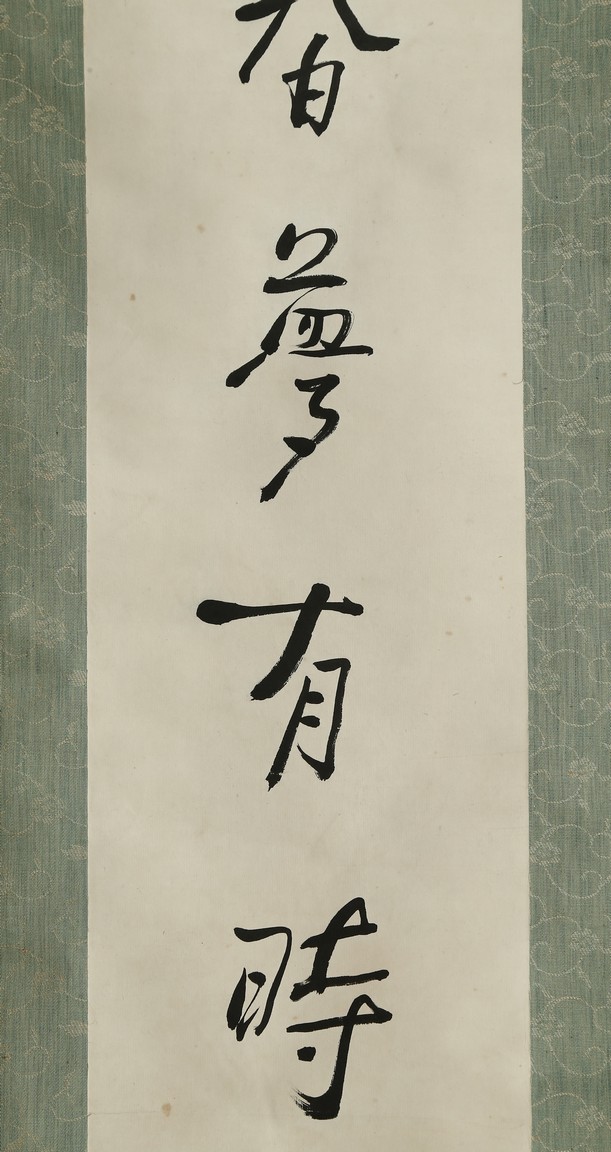 春夢有時